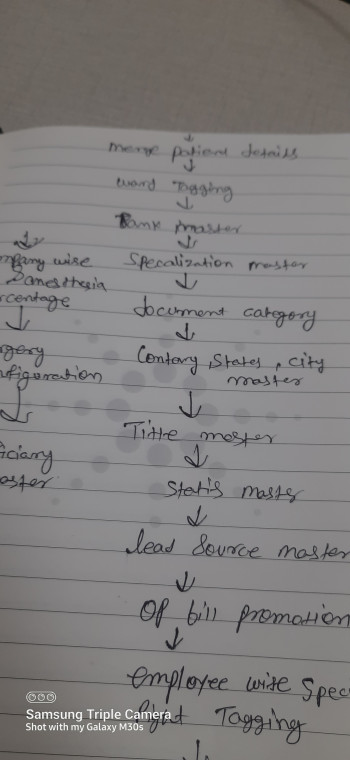 merge patient details
ward Tagging
Bank master
Specalization master
document category
Contary, States, city
master
Title master
Statis master
lead Source master
OP bill promotion
employee wise Spec
Tagging
mpany wise
anesthesia
rcentage
rgery
nfiguration
iciary
aster
Samsung Triple Camera
Shot with my Galaxy M30s